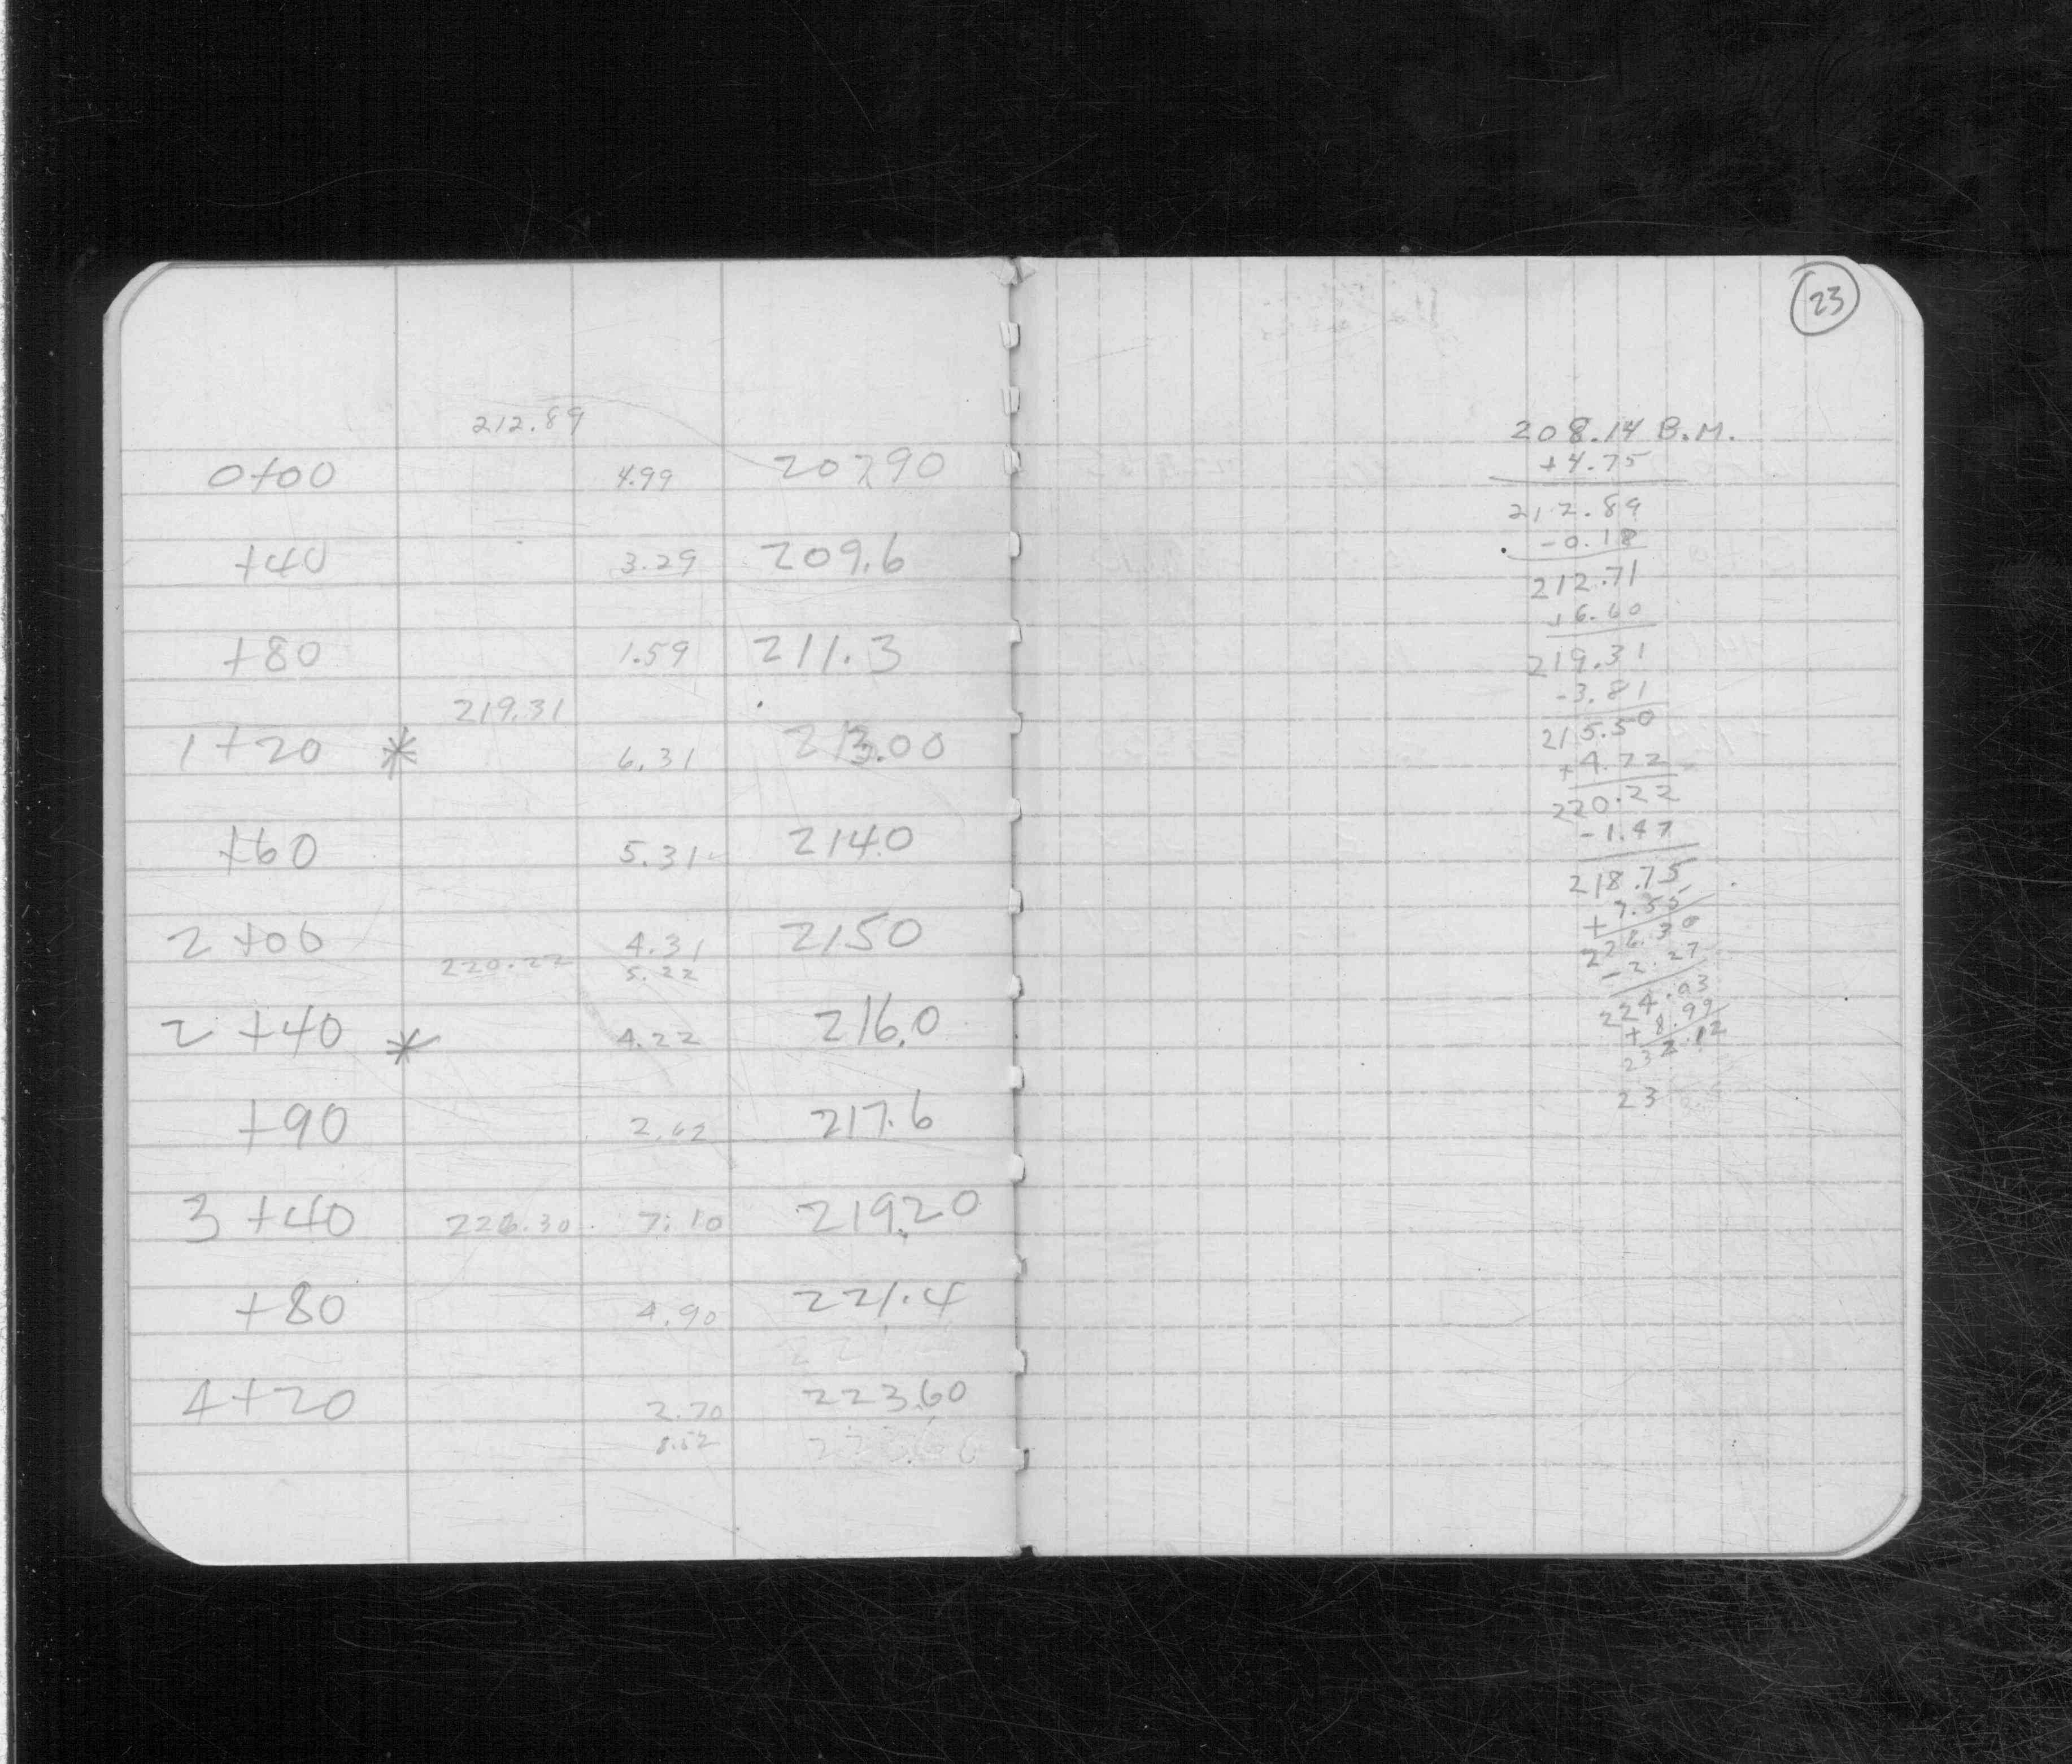 212.89
0+00 4.99 207.90
+40 3.29 209.6
+80 1.59 211.3
219.31
1+20 * 6.31 213.00
+60 5.31 214.0
2+00 4.31 215.0
220.22 5.22
2+40 * 4.22 216.0
+90 2.62 217.6
3+40 226.30 7.10 219.20
+80 4.90 221.4
221.4
4+20 2.70 223.60
8.52 223.60
23
208.14 B.M.
+4.75
212.89
-0.18
212.71
+6.60
219.31
-3.81
215.50
+4.72
220.22
-1.47
218.75
+7.55
226.30
-2.27
224.03
+8.99
232.12
23